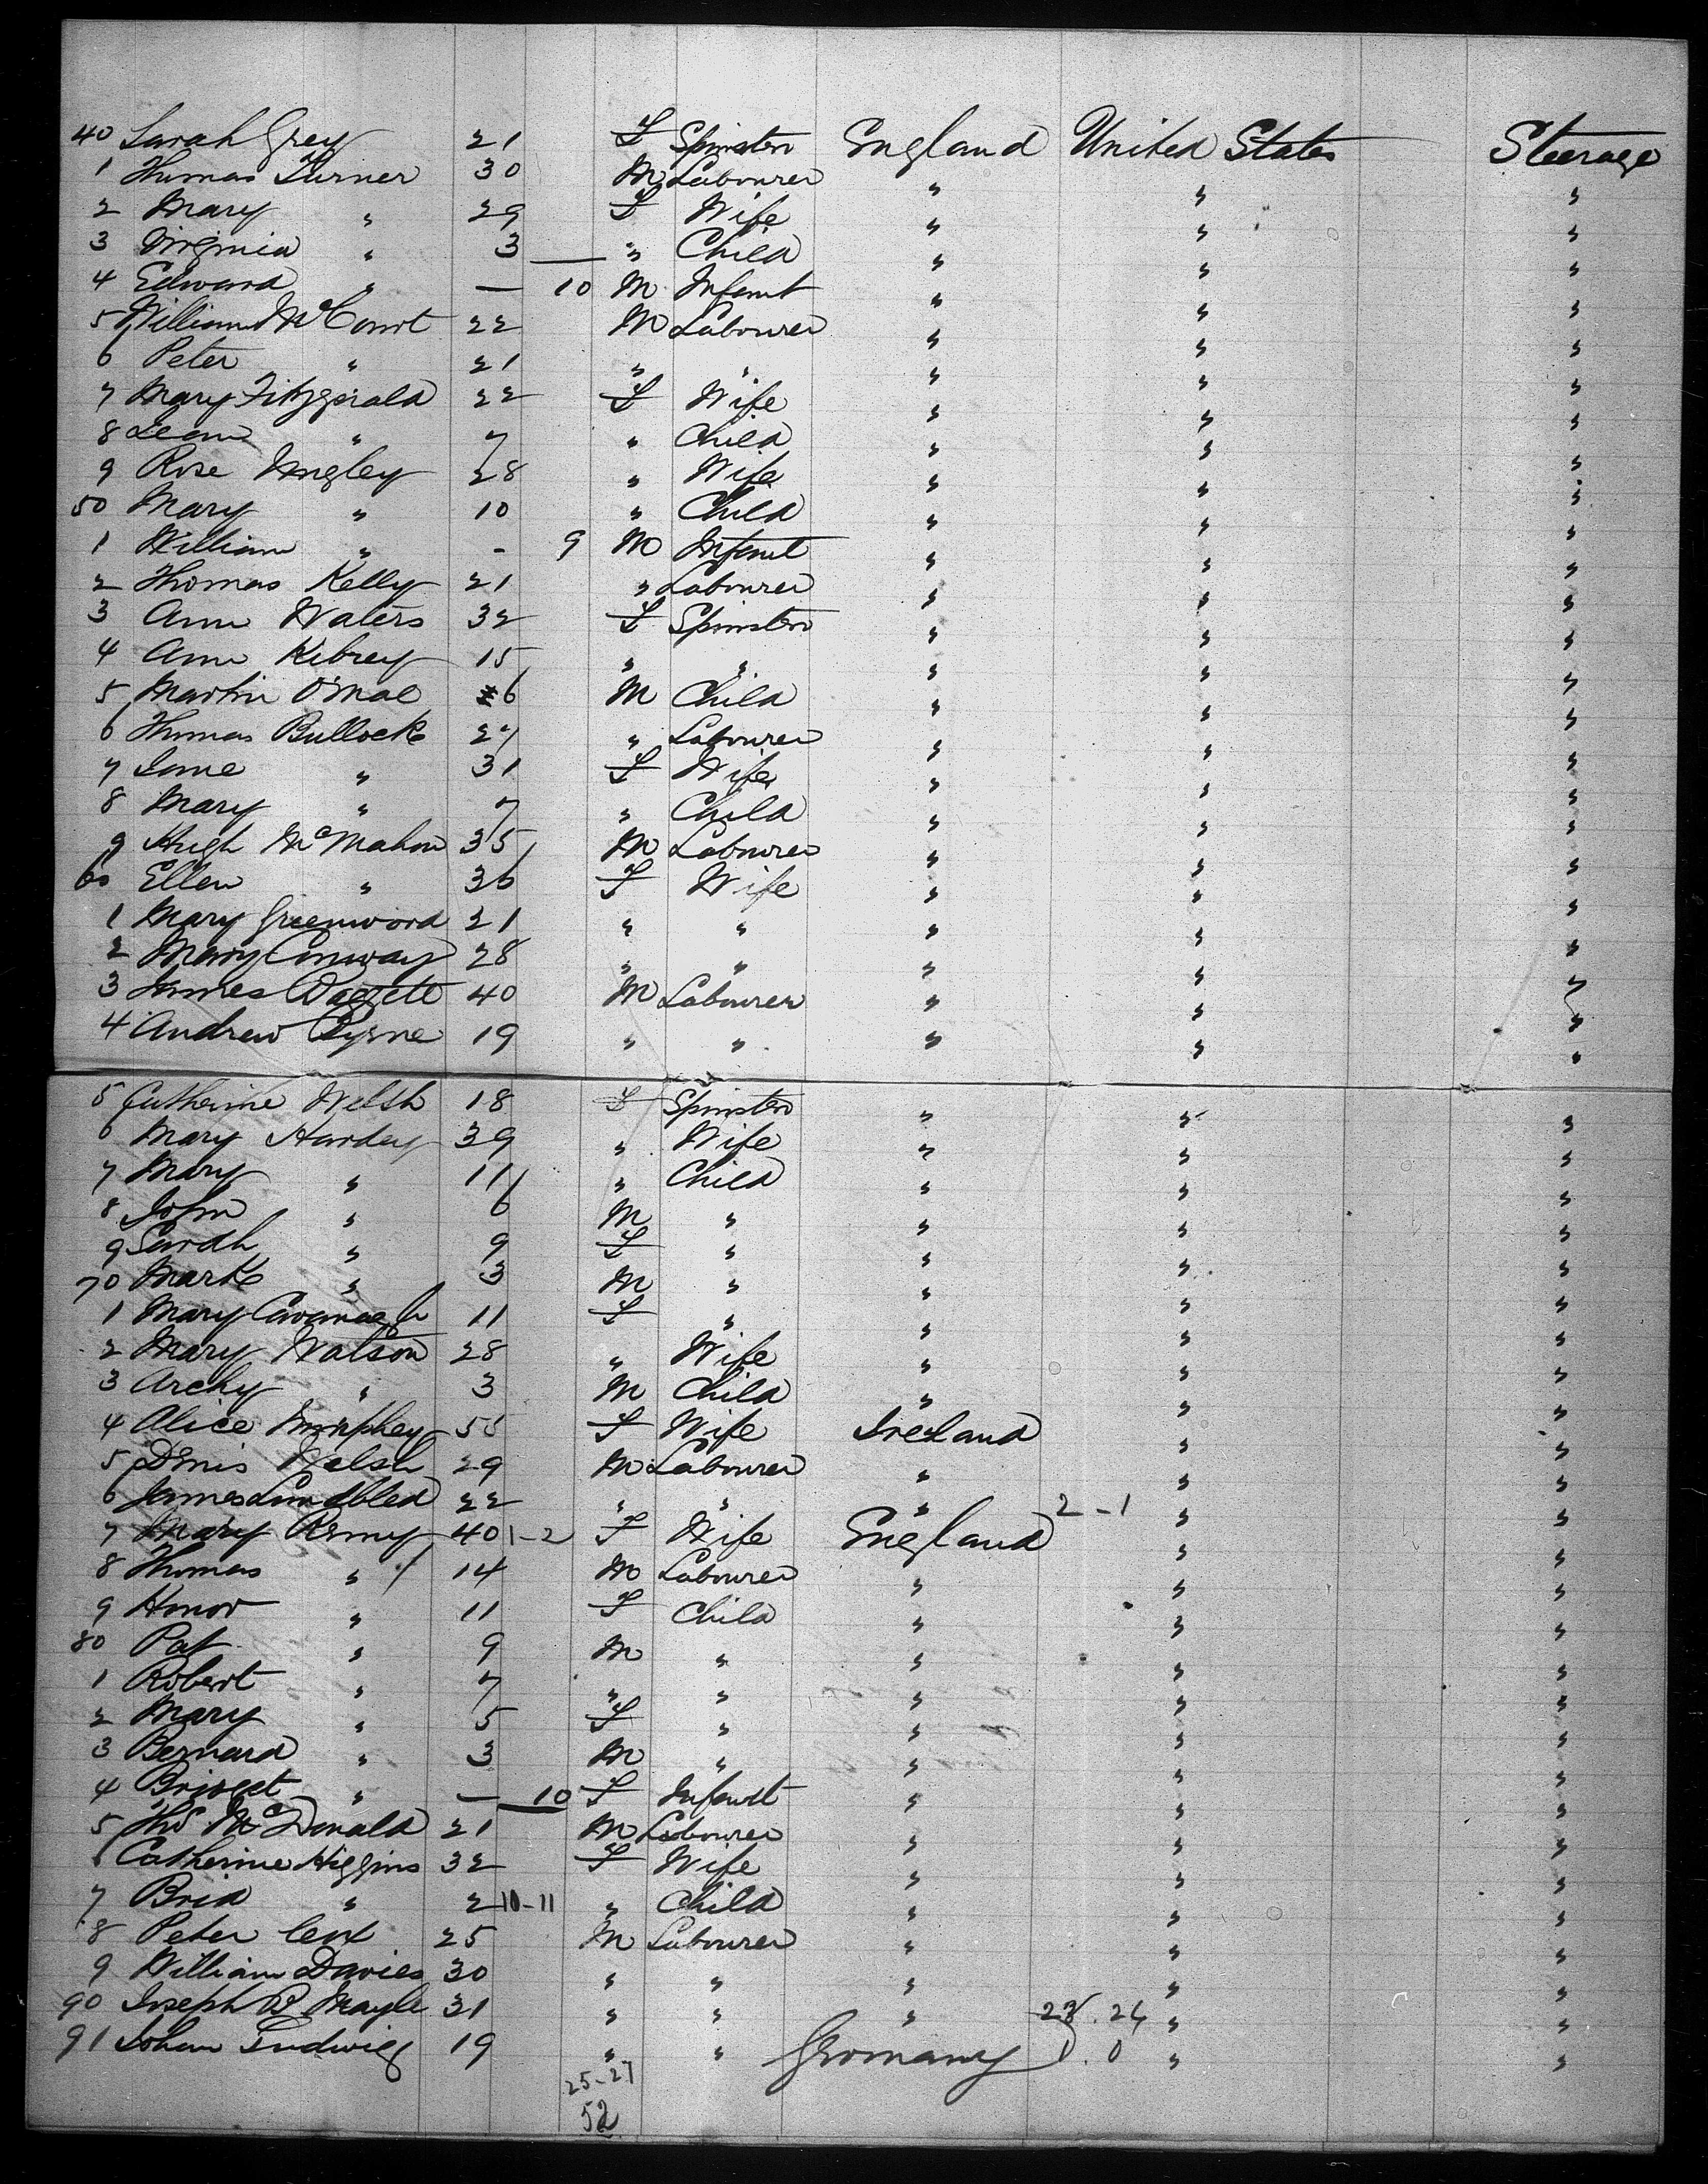 40 Sarah Grey 21 F Spinster England United States Steerage
1 Thomas Turner 30 M Labourer " " "
2 Mary " 29 F Wife " " "
3 Virginia " 3 " Child " " "
4 Edward " — 10 M Infant " " "
5 William McCourt 22 M Labourer " " "
6 Peter " 21 " " " " "
7 Mary Fitzgerald 22 F Wife " " "
8 " 7 " Child " " "
9 Rose 28 " Wife " " "
50 Mary " 10 " Child " " "
1 William " - 9 M Infant " " "
2 Thomas Kelly 21 " Labourer " " "
3 Ann Waters 32 F Spinster " " "
4 Ann Kibrey 15 " " " " "
5 Martin O'Mal 6 M Child " " "
6 Thomas Bullock 27 " Labourer " " "
7 Jane " 31 F Wife " " "
8 Mary " 7 " Child " " "
9 Hugh McMahon 35 M Labourer " " "
60 Ellen " 36 F Wife " " "
1 Mary Greenwood 21 " " " " "
2 Mary Conway 28 " " " " "
3 James 40 M Labourer " " "
4 Andrew Byrne 19 " " " " "
5 Catherine Welsh 18 F Spinster " " "
6 Mary Hardey 39 " Wife " " "
7 Mary " 11 " Child " " "
8 John " 6 M " " " "
9 Sarah " 9 F " " " "
70 Mark " 3 M " " " "
1 Mary Cavanagh 11 F " " " "
2 Mary Watson 28 " Wife " " "
3 Archy " 3 M Child " " "
4 Alice Murphey 55 F Wife Ireland " "
5 Denis Welsh 29 M Labourer " " "
6 James 22 " " " 2-1 " "
7 Mary 40 1-2 F Wife England " "
8 Thomas " 14 M Labourer " " "
9 Honor " 11 F Child " " "
80 Pat " 9 M " " " "
1 Robert " 7 " " " " "
2 Mary " 5 F " " " "
3 Bernard " 3 M " " " "
4 Bridget " — 10 F Infant " " "
5 Thos McDonald 21 M Labourer " " "
6 Catherine Higgins 32 F Wife " " "
7 Brid " 2 10-11 " Child " " "
8 Peter 25 M Labourer " " "
9 William Davies 30 " " " " "
90 Joseph B Mayle 31 " " " 23.24 " "
91 Johan Ludwig 19 " " Germany 0.0 " "
25-27
52